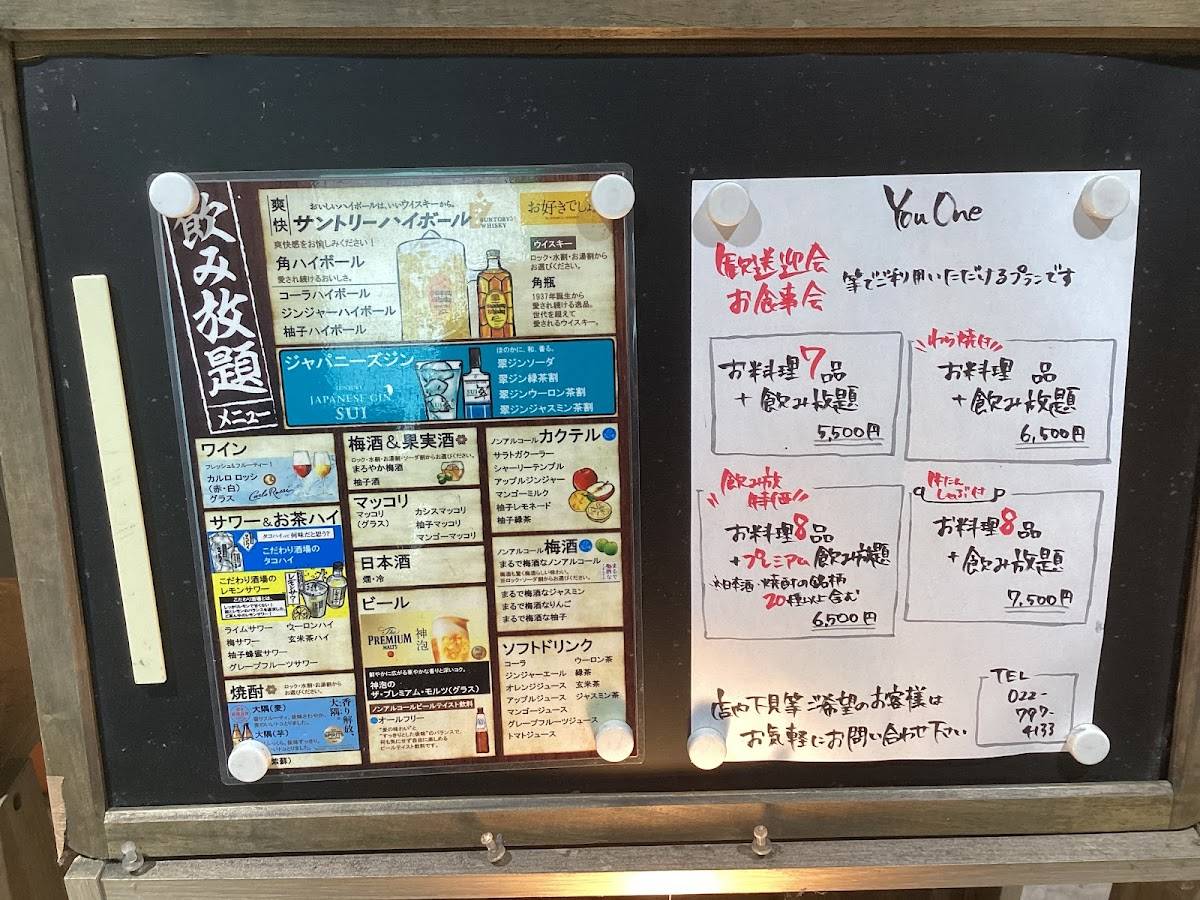 飲み放題
メニュー
おいしいハイボールは、いいウイスキーから。
爽快 サントリーハイボール
SUNTORY WHISKY
お好きでしょ
爽快感をお愉しみください！
角ハイボール
愛され続けるおいしさ。
コーラハイボール
ジンジャーハイボール
柚子ハイボール
ウイスキー
ロック・水割・お湯割から
お選びください。
角瓶
1937年誕生から
愛され続ける逸品。
世代を超えて
愛されるウイスキー。
ジャパニーズジン
JAPANESE GIN
SUI
ほのかに、和、香る。
翠ジンソーダ
翠ジン緑茶割
翠ジンウーロン茶割
翠ジンジャスミン茶割
ワイン
フレッシュ&フルーティー！
カルロ ロッシ
(赤・白)
グラス
Carlo Rossi
サワー&お茶ハイ
タコハイって何味だと思う?
こだわり酒場の
タコハイ
こだわり酒場の
レモンサワー
ライムサワー ウーロンハイ
梅サワー 玄米茶ハイ
柚子蜂蜜サワー
グレープフルーツサワー
焼酎
ロック・水割・お湯割から
お選びください。
大隅(麦)
大隅(芋)
大隅
香り解放。
梅酒&果実酒
ロック・水割・お湯割・ソーダ割からお選びください。
まろやか梅酒
柚子酒
マッコリ
マッコリ
(グラス)
カシスマッコリ
柚子マッコリ
マンゴーマッコリ
日本酒
燗・冷
ビール
The PREMIUM MALT'S
神泡
鮮やかに広がる華やかな香りと深いコク。
神泡の
ザ・プレミアム・モルツ(グラス)
ノンアルコールビールテイスト飲料
オールフリー
"愛の味わい"と
"すっきりとした後味"のバランスで、
何も気にせず自由に楽しめる
ビールテイスト飲料です。
ノンアルコールカクテル
サラトガクーラー
シャーリーテンプル
アップルジンジャー
マンゴーミルク
柚子レモネード
柚子緑茶
ノンアルコール梅酒
まるで梅酒なノンアルコール
まるで梅酒なジャスミン
まるで梅酒なりんご
まるで梅酒な柚子
ソフトドリンク
コーラ ウーロン茶
ジンジャーエール 緑茶
オレンジジュース 玄米茶
アップルジュース ジャスミン茶
マンゴージュース
グレープフルーツジュース
トマトジュース
You One
歓送迎会
お食事会
等でご利用いただけるプランです
お料理7品
+飲み放題
5,500円
わら焼付
お料理 品
+飲み放題
6,500円
飲み放
特価
お料理8品
+プレミアム飲み放題
※日本酒・焼酎の銘柄
20種以上含む
6,500円
牛たん
しゃぶ付
お料理8品
+飲み放題
7,500円
店内下見等ご希望のお客様は
お気軽にお問い合わせ下さい
TEL
022-
797-
4133